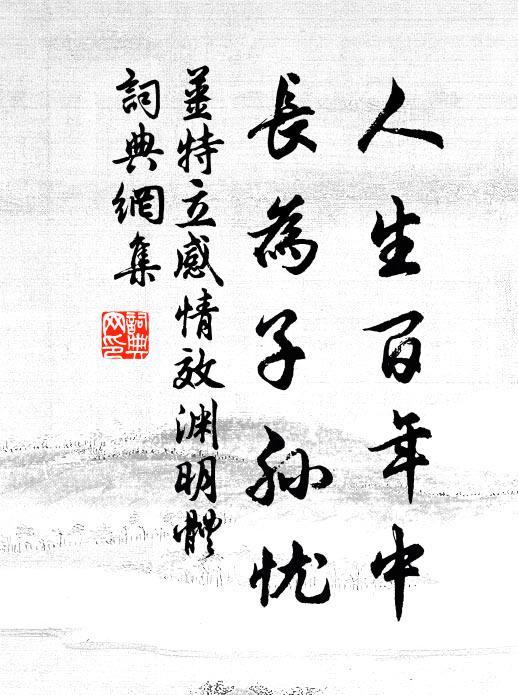 人生百年中
長為子孙忧
姜特立感情效渊明體
詞典網集
詞典
网印